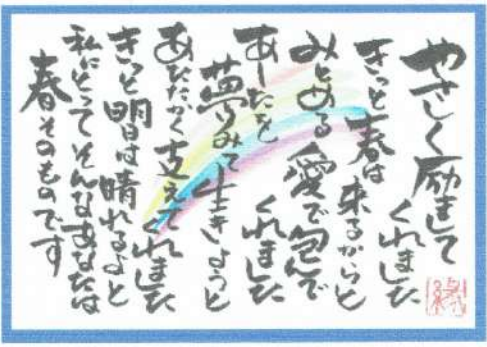 やさしく励まして
くれました
きっと春は来るからと
みとめる愛で包んで
くれました
あしたを
夢みて生きようと
あたたかく支えてくれました
きっと明日は晴れるよと
私にとってそんなあなたは
春そのものです
縁